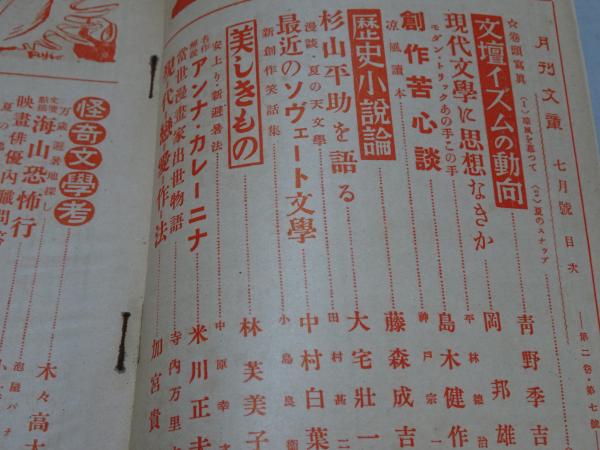 月刊文章 七月號 目次 ―第二卷・第七號―
☆卷頭寫眞 (一)凉風を慕つて (二)夏のスナップ
文壇イズムの動向 靑野季吉
現代文學に思想なきか 岡邦雄
モダン・トリックあの手この手 平林 治
創作苦心談 島木健作
凉風讀本 神戸宗一
歷史小說論 藤森成吉
杉山平助を語る 大宅壯一
漫談・夏の天文學 田村甚二
最近のソヴェート文學 中村白葉
新創作笑話集 小島良衞
美しきもの 林芙美子
安上り・新避暑法 中原幸
名作解說 アンナ・カレーニナ 米川正夫
當世漫畫家出世物語 寺內万里
現代戀愛作法 加宮貴
怪奇文學考
万歲避暑地探し
文壇點描 海山恐怖行 木々高太
映畫俳優內職問答